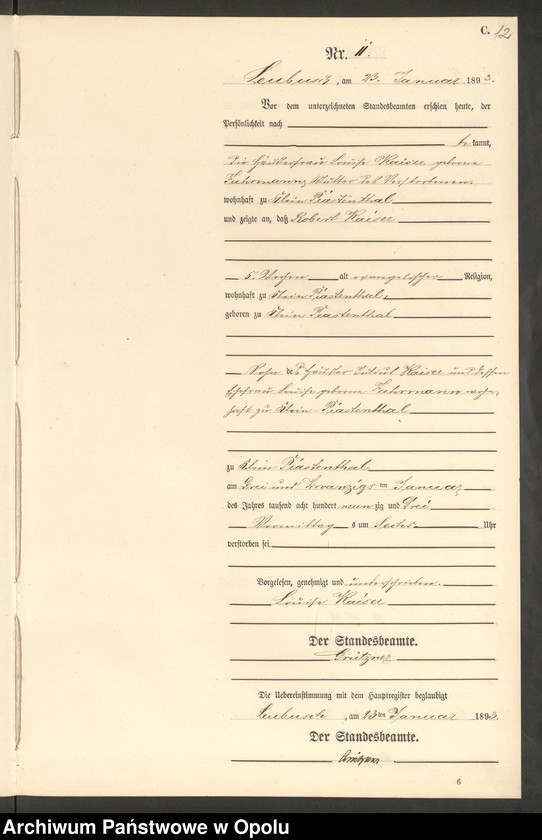 C. 12
Nr. 11.
Leubusch, am 23. Januar 1893.
Vor dem unterzeichneten Standesbeamten erschien heute, der
Persönlichkeit nach
bekannt,
die Häuslerfrau Louise Kaiser geborne
Fuhrmann, Mutter des Verstorbenen,
wohnhaft zu Klein Piastenthal
und zeigte an, daß Robert Kaiser
5. Wochen alt evangelischer Religion,
wohnhaft zu Klein Piastenthal,
geboren zu Klein Piastenthal
Sohn des Häusler Kaiser und dessen
Ehefrau Louise geborne Fuhrmann, wohn-
haft zu Klein-Piastenthal
zu Klein Piastenthal
am Drei und Zwanzigs ten Januar
des Jahres tausend acht hundert neunzig und Drei
Vormittags um Sechs Uhr
verstorben sei.
Vorgelesen, genehmigt und unterschrieben.
Louise Kaiser
Der Standesbeamte.
Grützner
Die Uebereinstimmung mit dem Hauptregister beglaubigt
Leubusch, am 23ten Januar 1893.
Der Standesbeamte.
Grützner
6
Archiwum Państwowe w Opolu